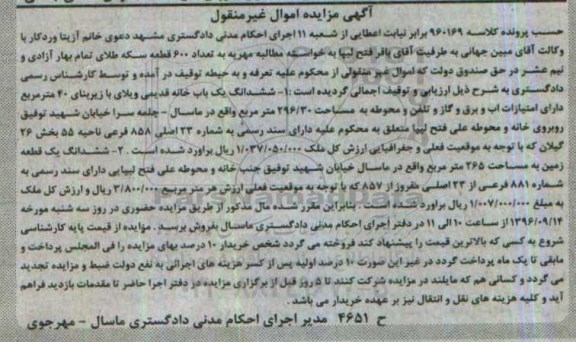 آگهی مزایده اموال غیر منقول
حسب پرونده کلاسه ۹۶۰۱۶۹ برابر نیابت اعطایی از شعبه ۱۱ اجرای احکام مدنی دادگستری مشهد دعوی خانم آزیتا وردکار با
وکالت آقای مبین جهانی به طرفیت آقای باقر فتح لیپا به خواسته مطالبه مهریه به تعداد ۶۰۰ قطعه سکه طلای تمام بهار آزادی و
نیم عشر در حق صندوق دولت که اموال غیر منقولی از محکوم علیه تعرفه و به حیطه توقیف در آمده و توسط کارشناس رسمی
دادگستری به شرح ذیل ارزیابی و توقیف اجمالی گردیده است :۱- ششدانگ یک باب خانه قدیمی ویلای با زیربنای ۴۰ مترمربع
دارای امتیازات اب و برق و گاز و تلفن و محوطه به مساحت ۲۹۶/۳۰ متر مربع واقع در ماسال – چلمه سرا خیابان شهید توفیق
روبروی خانه و محوطه علی فتح لیپا متعلق به محکوم علیه دارای سند رسمی به شماره ۲۳ اصلی ۸۵۸ فرعی ناحیه ۵۵ بخش ۲۶
گیلان که با توجه به موقعیت فعلی و جغرافیایی ارزش کل ملک ۱/۰۳۷/۰۵۰/۰۰۰ ریال براورد شده است . ۲- ششدانگ یک قطعه
زمین به مساحت ۲۶۵ متر مربع واقع در ماسال خیابان شهید توفیق جنب خانه و محوطه علی فتح لیپایی دارای سند رسمی به
شماره ۸۸۱ فرعی از ۲۳ اصلی مفروز از ۸۵۷ که با توجه به موقعیت فعلی ارزش هر متر مربع ۳/۸۰۰/۰۰۰ ریال و ارزش کل ملک
به مبلغ ۱/۰۰۷/۰۰۰/۰۰۰ ریال براورد شده است. بنابراین مقرر شده مال مذکور از طریق مزایده حضوری در روز سه شنبه مورخه
۱۳۹۶/۰۹/۱۴ از ساعت ۱۰ الی ۱۱ در دفتر اجرای احکام مدنی دادگستری ماسال بفروش برسید . مزایده از قیمت پایه کارشناسی
شروع به کسی که بالاترین قیمت را پیشنهاد کند فروخته می گردد شخص خریدار ۱۰ درصد بهای مزایده را فی المجلس پرداخت و
مابقی تا یک ماه پرداخت گردد در غیر این صورت ۱۰ درصد اولیه پس از کسر هزینه های اجرائی به نفع دولت ضبط و مزایده تجدید
می گردد و کسانی هم که مایلند در مزایده شرکت کنند تا ۵ روز قبل از برگزاری مزایده در دفتر اجرا حاضر تا مقدمات بازدید فراهم
آید و کلیه هزینه های نقل و انتقال نیز بر عهده خریدار می باشد .
ح ۴۶۵۱ مدیر اجرای احکام مدنی دادگستری ماسال - مهرجوی